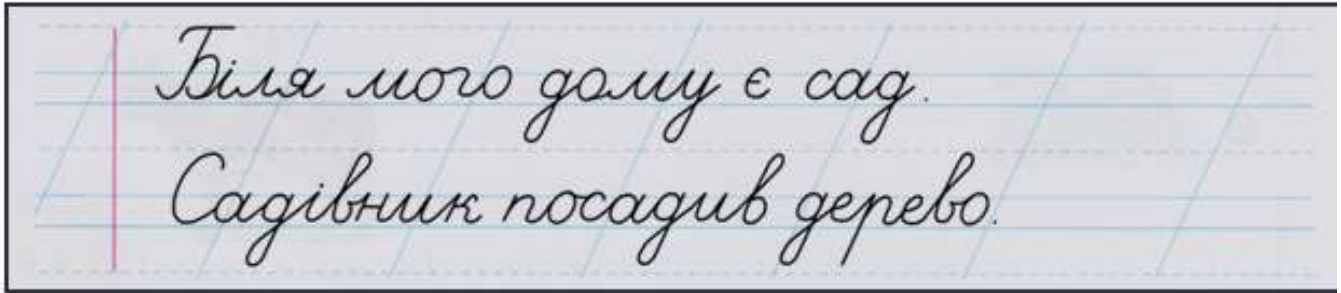 Біля мого дому є сад.
Садівник посадив дерево.